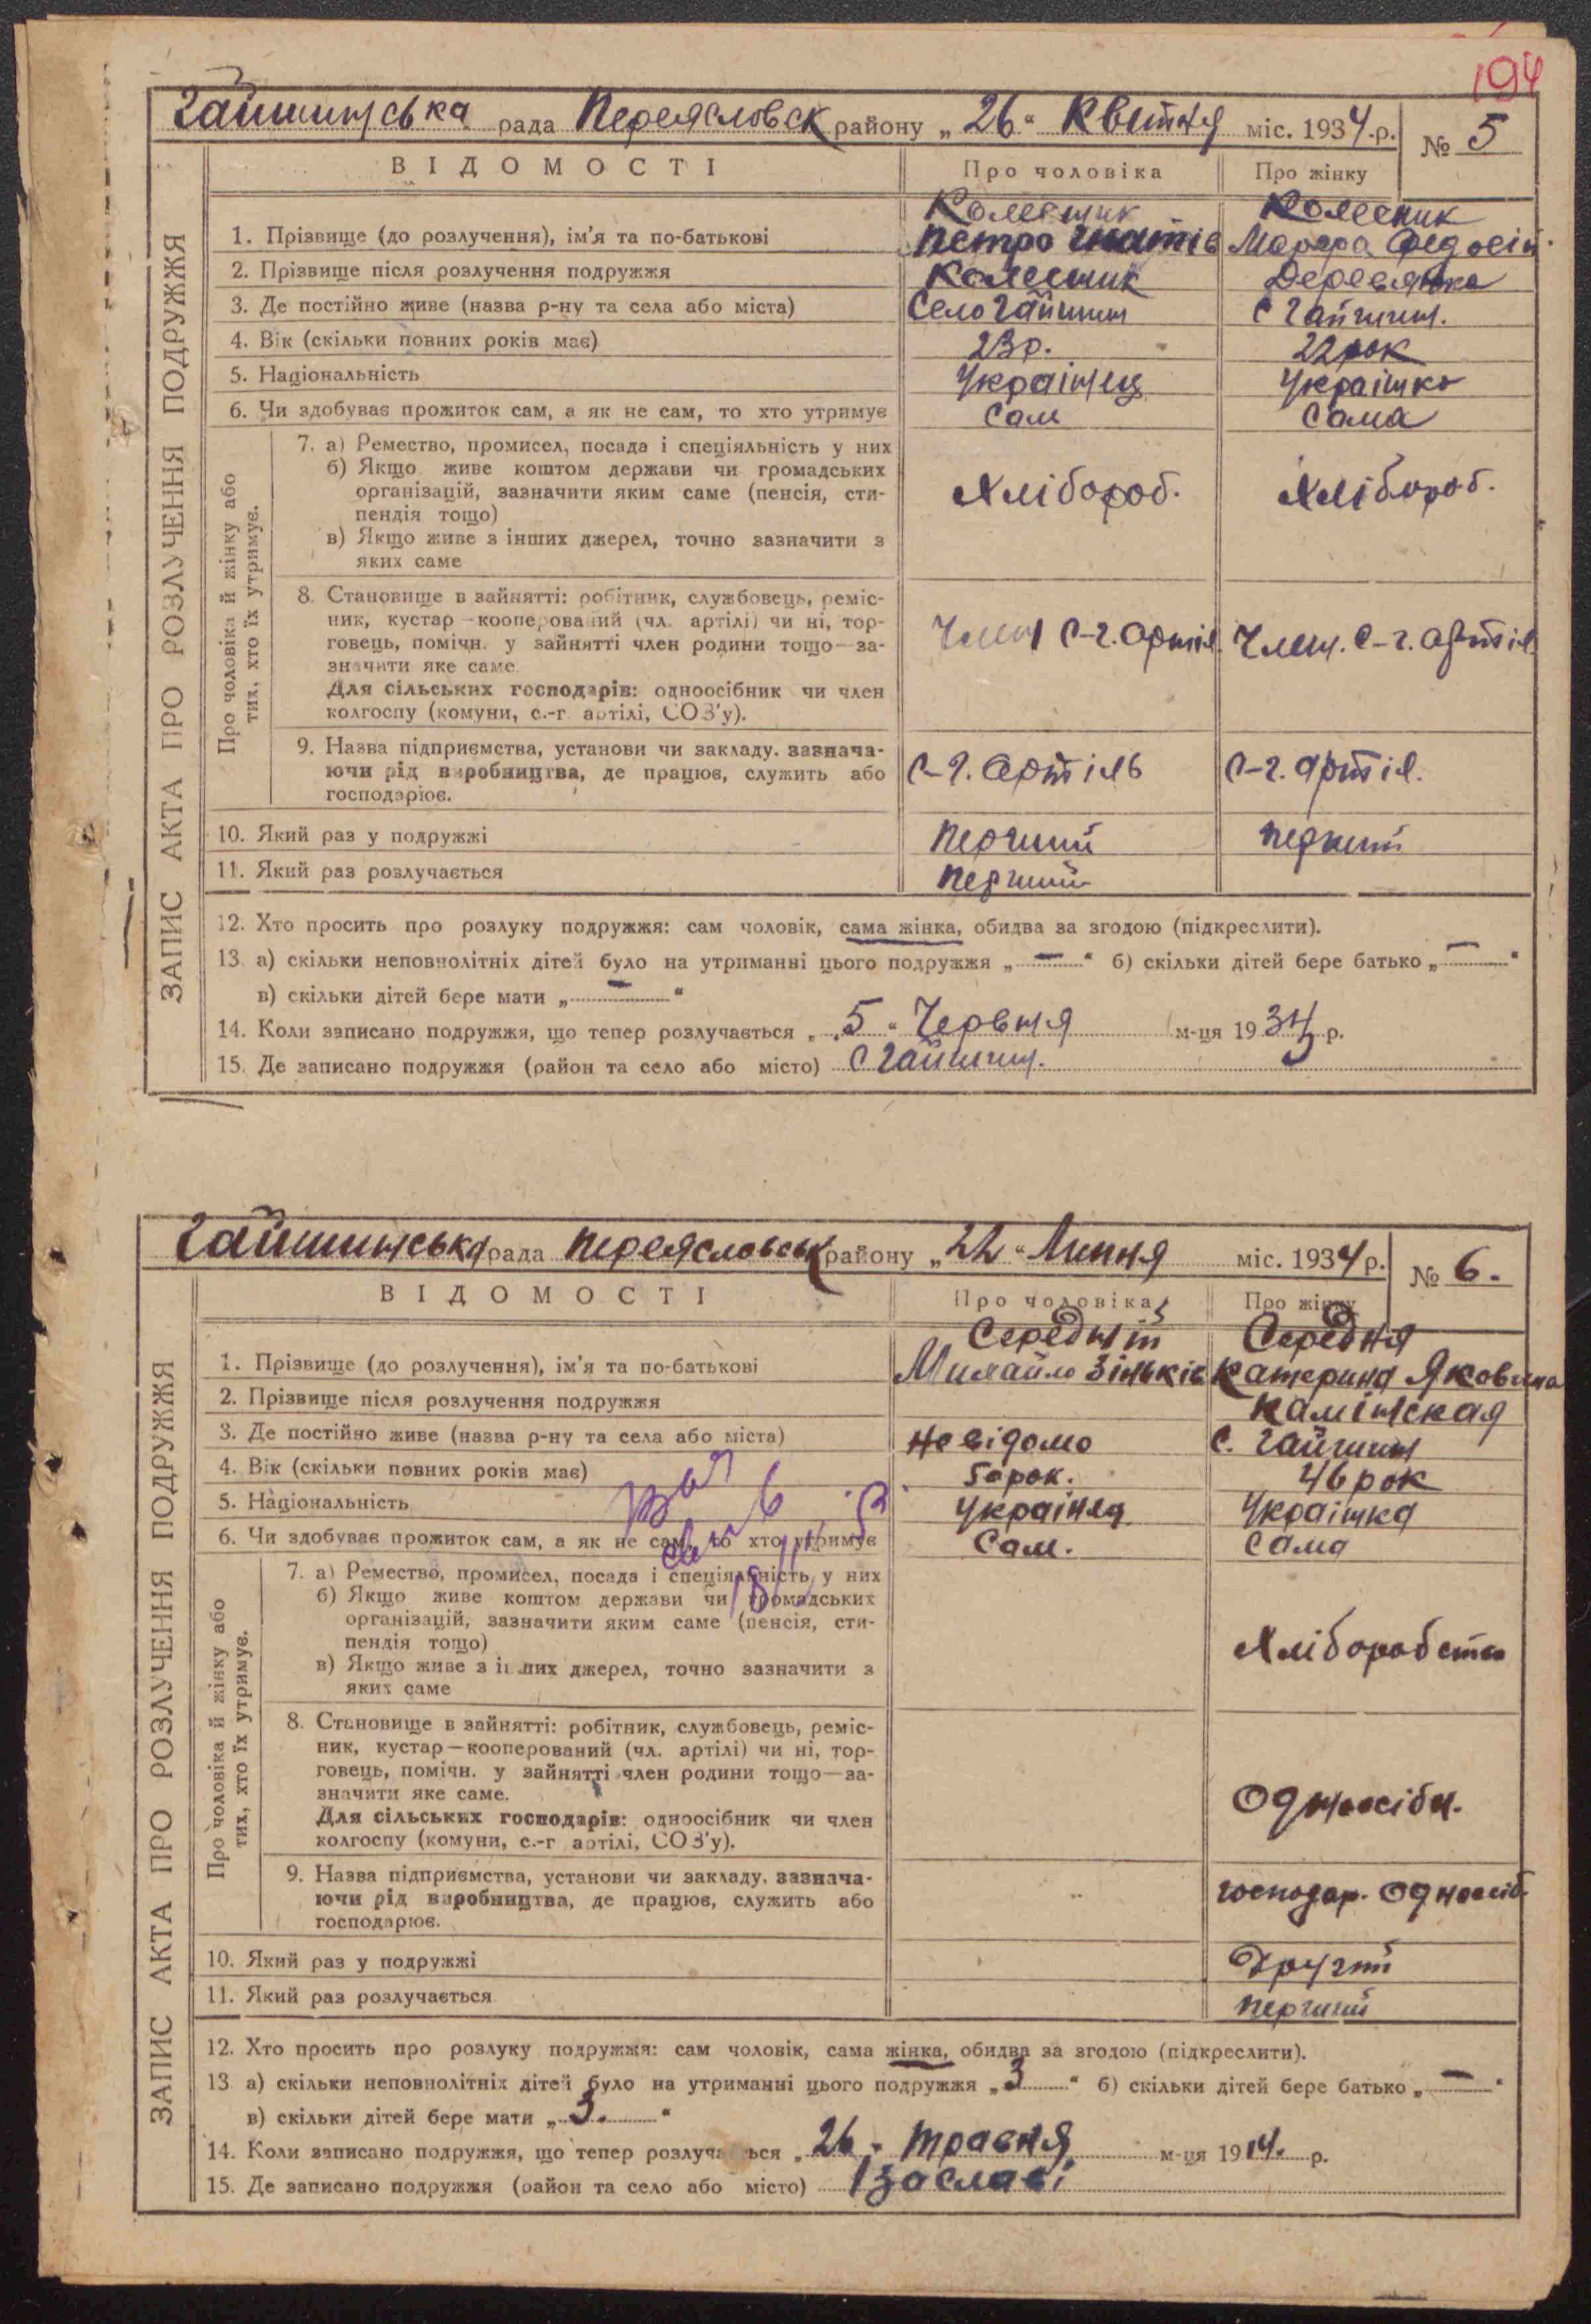 194
Гайшинська рада Переясловськ району „26“ Квітня міс. 1934 р. № 5
ВІДОМОСТІ Про чоловіка Про жінку
Колесник Колесник
1. Прізвище (до розлучення), ім'я та по-батькові Петро Гнатів Марфа Федосіи
2. Прізвище після розлучення подружжя Колесник Деревянка
3. Де постійно живе (назва р-ну та села або міста) Село Гайшин С Гайшин.
4. Вік (скільки повних років має) 23 р. 22 рок
5. Національність Українец Українко
6. Чи здобуває прожиток сам, а як не сам, то хто утримує Сам Сама
7. а) Ремество, промисел, посада і спеціяльність у них
б) Якщо живе коштом держави чи громадських
організацій, зазначити яким саме (пенсія, сти- Хлібороб. Хлібороб.
пендія тощо)
в) Якщо живе з інших джерел, точно зазначити з
яких саме
8. Становище в зайнятті: робітник, службовець, реміс-
ник, кустар—кооперований (чл. артілі) чи ні, тор-
говець, помічн. у зайнятті член родини тощо—за- Член С-г. артіл Член. С-г. артіл
значити яке саме.
Для сільських господарів: одноосібник чи член
колгоспу (комуни, с.-г. артілі, СОЗ'у).
9. Назва підприємства, установи чи закладу, зазнача-
ючи рід виробництва, де працює, служить або С-г. артіль С-г. артіл.
господарює.
10. Який раз у подружжі перший перший
11. Який раз розлучається перший
12. Хто просить про розлуку подружжя: сам чоловік, сама жінка, обидва за згодою (підкреслити).
13 а) скільки неповнолітніх дітей було на утриманні цього подружжя „—“ б) скільки дітей бере батько „—“
в) скільки дітей бере мати „—“
14. Коли записано подружжя, що тепер розлучається „5“ Червня м-ця 19 р.
15. Де записано подружжя (район та село або місто) С Гайшин.
ЗАПИС АКТА ПРО РОЗЛУЧЕННЯ ПОДРУЖЖЯ
Про чоловіка й жінку або
тих, хто їх утримує.
Гайшинська рада Переясловськ району „22“ Липня міс. 1934 р. № 6.
ВІДОМОСТІ Про чоловіка Про жінку
Середній Середня
1. Прізвище (до розлучення), ім'я та по-батькові Михайло Зіньків Катерина Яковлна
2. Прізвище після розлучення подружжя Камінская
3. Де постійно живе (назва р-ну та села або міста) Невідомо С. Гайшин
4. Вік (скільки повних років має) 50 рок. 46 рок
5. Національність Українец Українка
6. Чи здобуває прожиток сам, а як не сам, то хто утримує Сам. Сама
7. а) Ремество, промисел, посада і спеціяльність у них
б) Якщо живе коштом держави чи громадських
організацій, зазначити яким саме (пенсія, сти-
пендія тощо) Хліборобств
в) Якщо живе з інших джерел, точно зазначити з
яких саме
8. Становище в зайнятті: робітник, службовець, реміс-
ник, кустар—кооперований (чл. артілі) чи ні, тор-
говець, помічн. у зайнятті член родини тощо—за-
значити яке саме. Одноосібн.
Для сільських господарів: одноосібник чи член
колгоспу (комуни, с.-г. артілі, СОЗ'у).
9. Назва підприємства, установи чи закладу, зазнача-
ючи рід виробництва, де працює, служить або господар. Одноосіб.
господарює.
10. Який раз у подружжі Другий
11. Який раз розлучається перший
12. Хто просить про розлуку подружжя: сам чоловік, сама жінка, обидва за згодою (підкреслити).
13 а) скільки неповнолітніх дітей було на утриманні цього подружжя „3“ б) скільки дітей бере батько „—“
в) скільки дітей бере мати „3.“
14. Коли записано подружжя, що тепер розлучається „26“ Травня м-ця 1914. р.
15. Де записано подружжя (район та село або місто) Ізаславі
ЗАПИС АКТА ПРО РОЗЛУЧЕННЯ ПОДРУЖЖЯ
Про чоловіка й жінку або
тих, хто їх утримує.